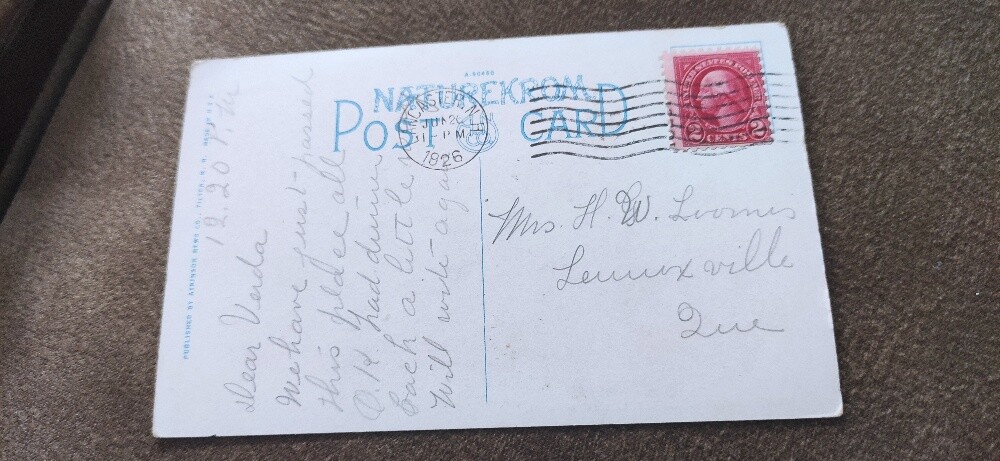 A-90450
NATUREKROM
POST CARD
LANCASTER, N.H.
JUN 20
1 PM
1926
UNITED STATES POSTAGE
2 CENTS 2
12.20 P.M.
Dear Verda
We have just passed
this place all
O.K had dinner
back a little
Will write again
Mrs. H. W. Loomis
Lennoxville
Que
PUBLISHED BY ATKINSON NEWS CO., TILTON, N. H. MADE IN U.S.A.